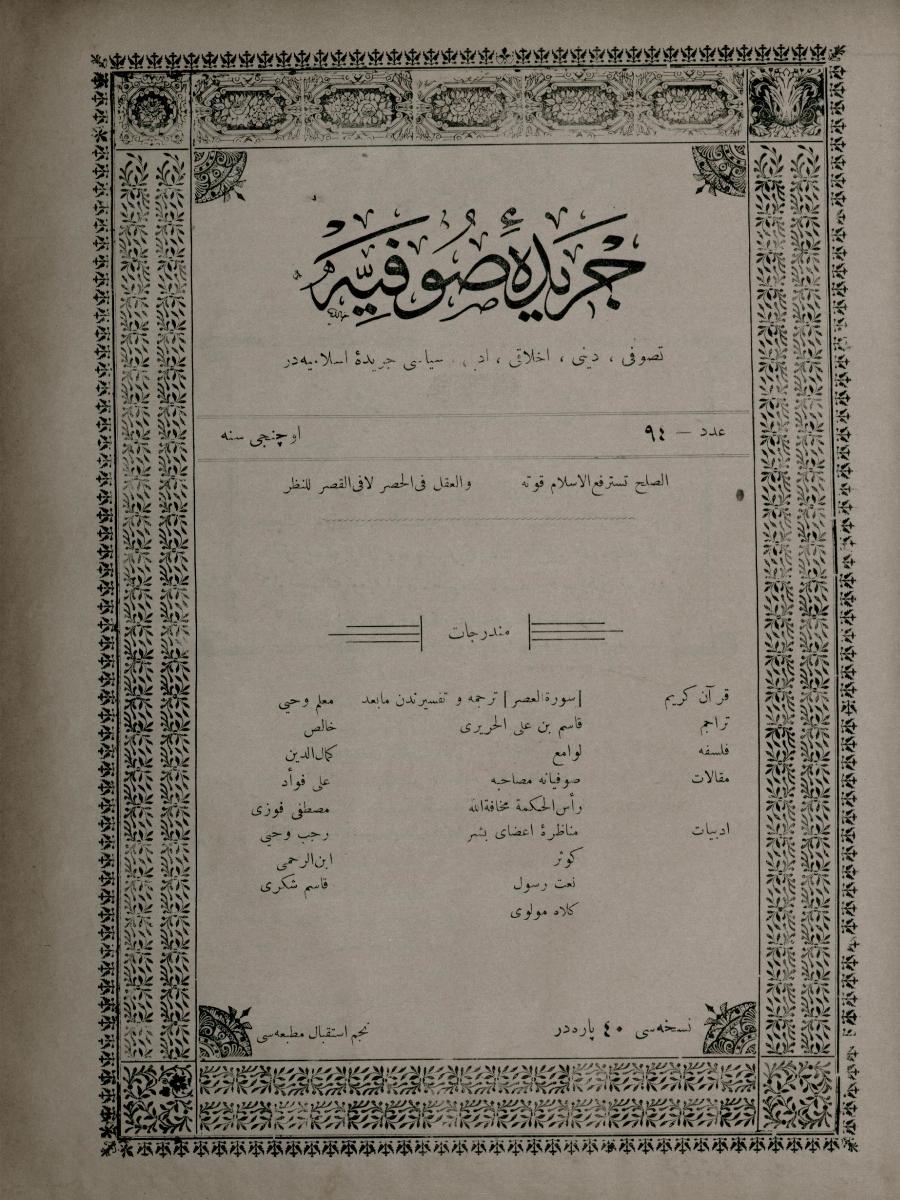 جريدهٔ صوفيه
تصوفى ، دينى ، اخلاقى ، ادبى ، سياسى جريدهٔ اسلاميه‌در
عدد — ٩٤ اوچنجى سنه
الصلح تسترفع الاسلام قوته والعقل فى الحصر لا فى القصر للنظر
مندرجات
قرآن كريم [سورة العصر] ترجمه و تفسيرندن مابعد معلم وحيى
تراجم قاسم بن على الحريرى خالص
فلسفه لوامع كمال‌الدين
مقالات صوفيانه مصاحبه على فوأد
رأس الحكمة مخافة الله مصطفى فوزى
ادبيات مناظرهٔ اعضاى بشر رجب وحيى
كوثر ابن الرحمى
نعت رسول قاسم شكرى
كلاه مولوى
نسخه‌سى ٤٠ پاره‌در نجم استقبال مطبعه‌سى